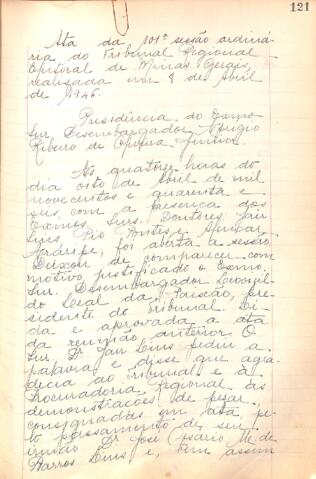 121
Ata da 101ª sessão ordiná-
ria do Tribunal Regional
Eleitoral de Minas Gerais,
realisada em 8 de Abril
de 1946.
Presidência do Exmo
Snr. Desembargador
Ribeiro de Oliveira
Às quatorze horas do
dia oito de Abril de mil
novecentos e quarenta e
seis, com a presença dos
Exmos. Snrs. Doutores Jair
Lins, Pio Pontes e Amilcar
Araripe, foi aberta a sessão.
Deixou de comparecer com
motivo justificado o Exmo.
Snr. Desembargador Leovigil-
do Leal da Paixão, pre-
sidente do Tribunal. Li-
da e aprovada a ata
da reunião anterior. O
Snr. Dr. Jair Lins pediu a
palavra e disse que agra-
decia ao Tribunal e à
Procuradoria Regional as
demonstrações de pezar,
consignadas em ata, pe-
lo passamento de seu
irmão Dr. José
Barros Lins e, bem assim